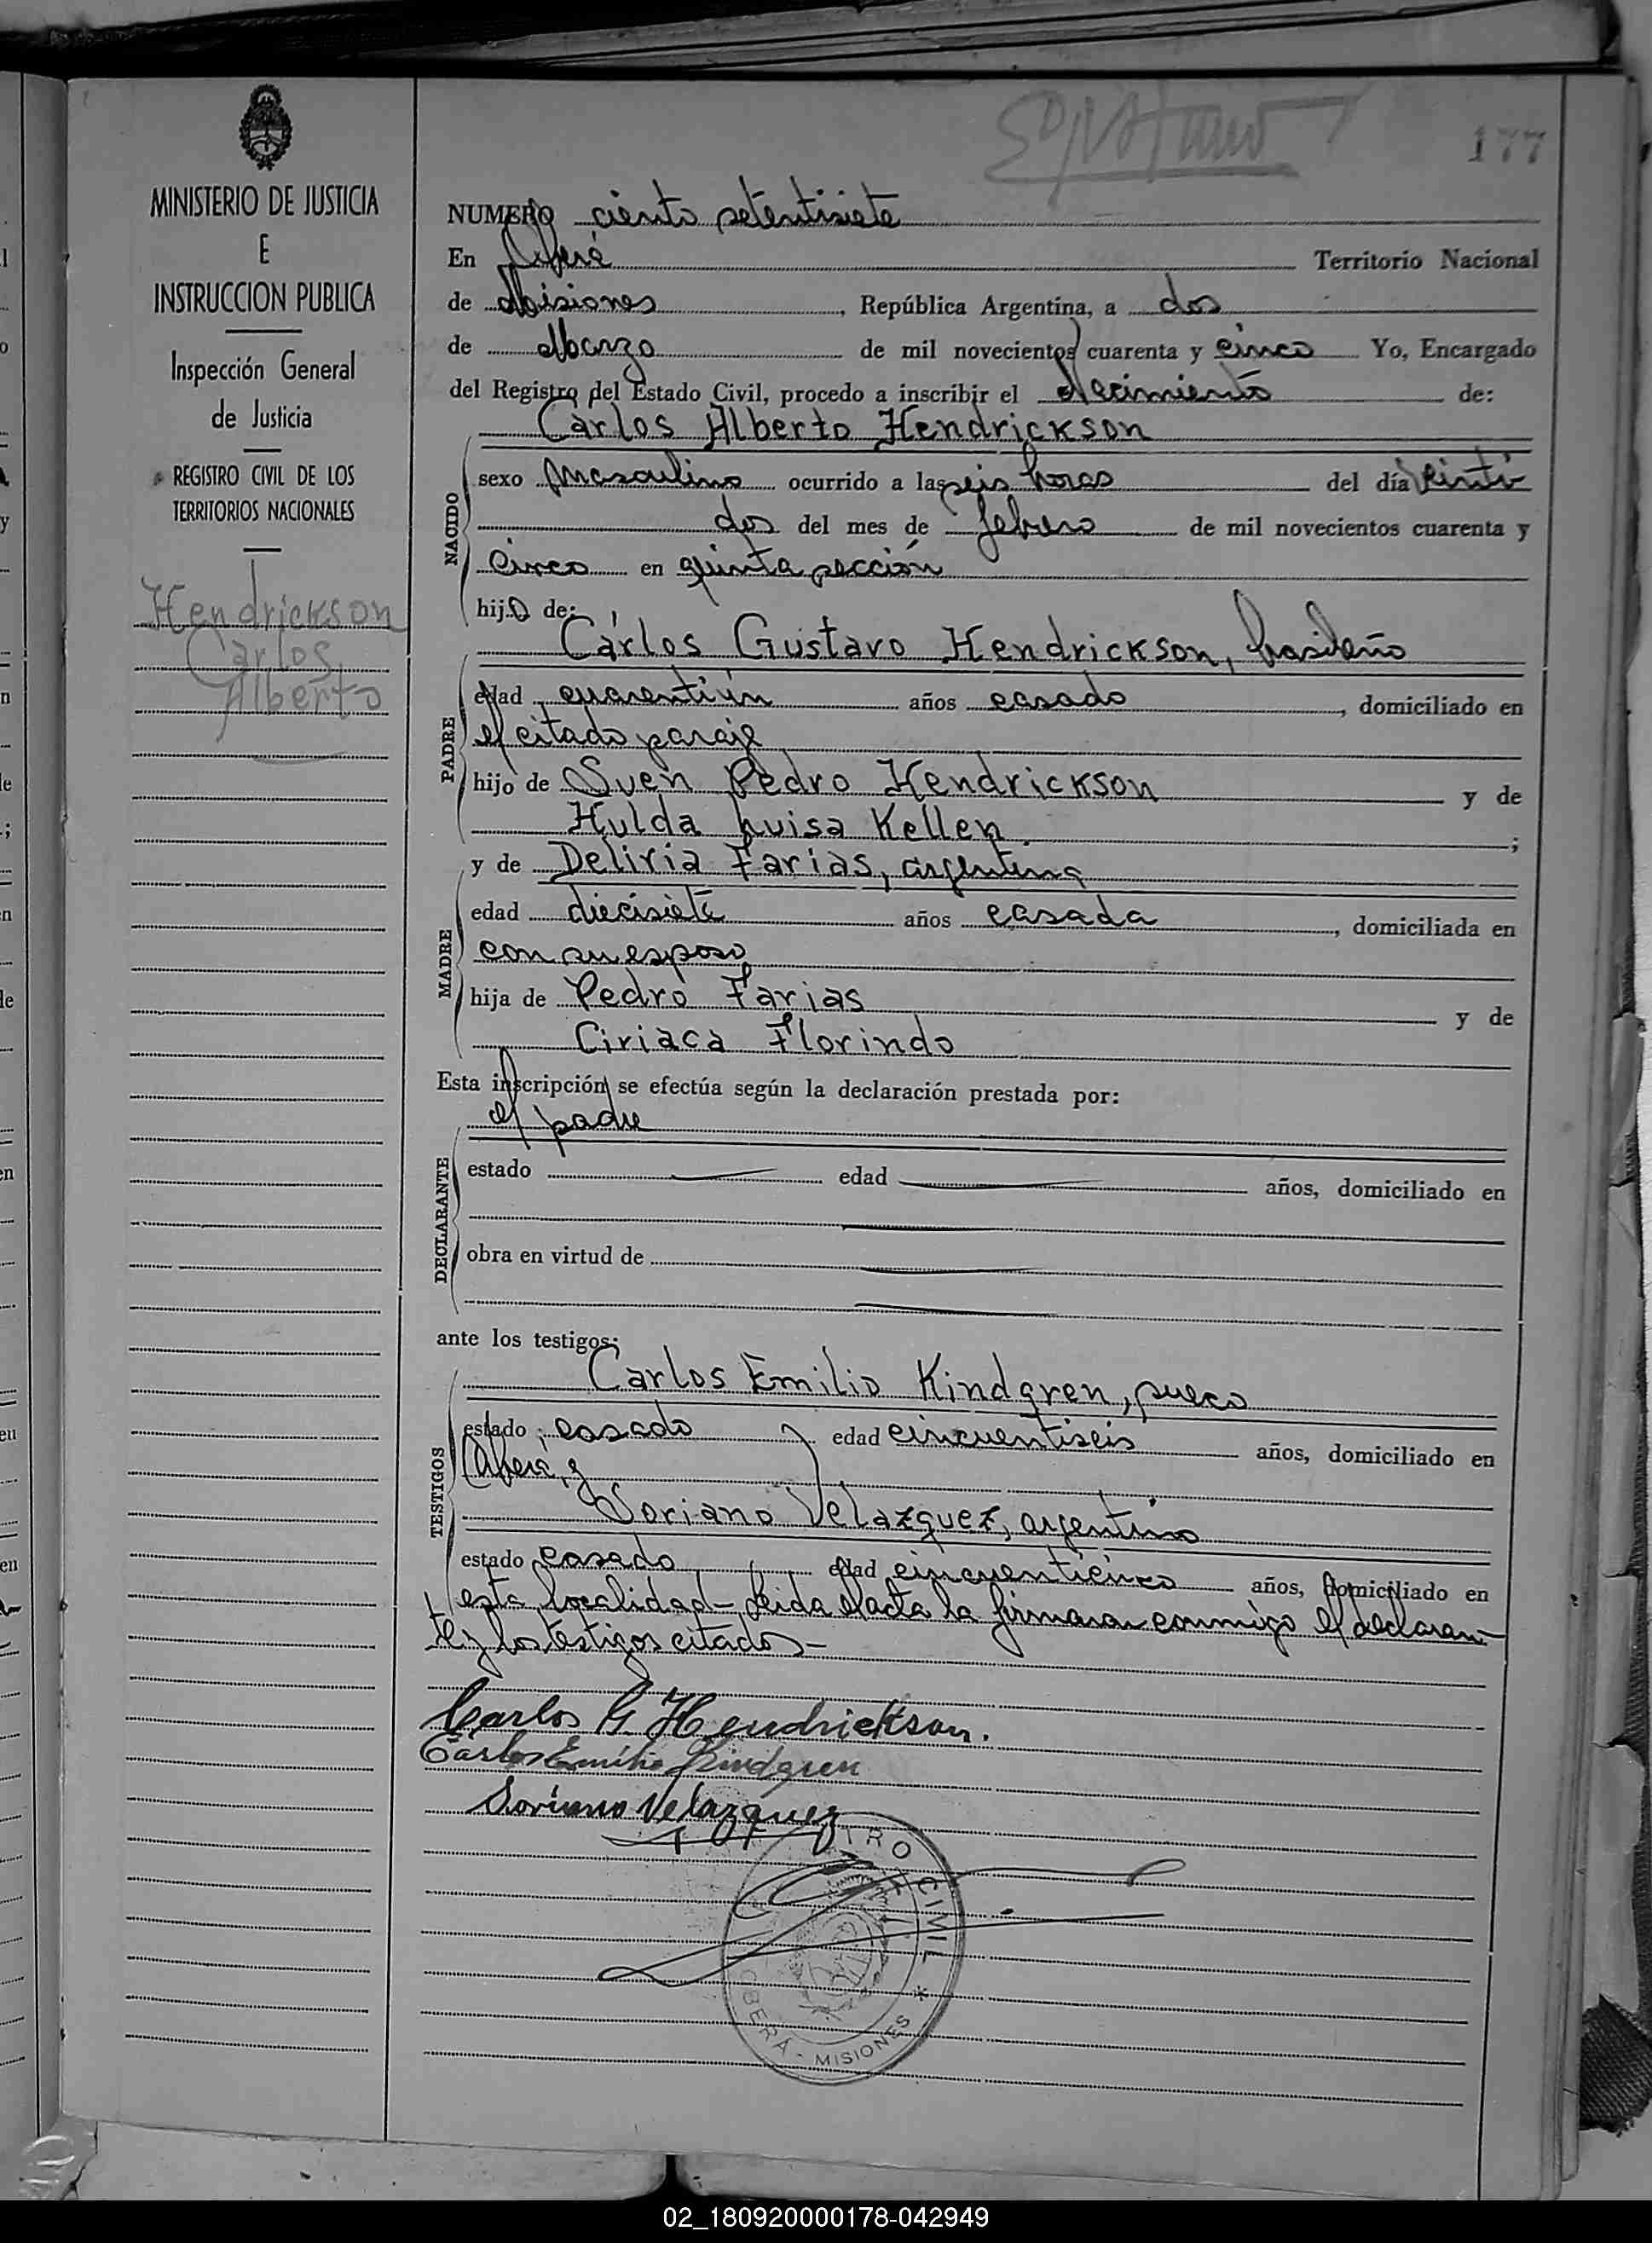 177
MINISTERIO DE JUSTICIA
E
INSTRUCCION PUBLICA
Inspección General
de Justicia
REGISTRO CIVIL DE LOS
TERRITORIOS NACIONALES
Hendrickson
Carlos
Alberto
NUMERO ciento setentisiete
En Oberá Territorio Nacional
de Misiones, República Argentina, a dos
de Marzo de mil novecientos cuarenta y cinco Yo, Encargado
del Registro del Estado Civil, procedo a inscribir el Nacimiento de:
Carlos Alberto Hendrickson
NACIDO
sexo Masculino ocurrido a las seis horas del día Veinti
dos del mes de febrero de mil novecientos cuarenta y
cinco en quinta sección
hijo de:
Carlos Gustavo Hendrickson, brasileño
PADRE
edad cuarentiún años casado, domiciliado en
el citado paraje
hijo de Sven Pedro Hendrickson y de
Hulda Luisa Kellen;
y de Deliria Farias, argentina
MADRE
edad diecisiete años casada, domiciliada en
con su esposo
hija de Pedro Farias y de
Ciriaca Florindo
Esta inscripción se efectúa según la declaración prestada por:
el padre
DECLARANTE
estado edad años, domiciliado en
obra en virtud de
ante los testigos:
Carlos Emilio Kindgren, sueco
TESTIGOS
estado casado edad cincuentiseis años, domiciliado en
Oberá, y
Soriano Velazquez, argentino
estado casado edad cincuenticinco años, domiciliado en
esta localidad - Leida el acta la firmaron conmigo el declaran-
te y los testigos citados -
Carlos G Hendrickson.
Carlos Emilio Kindgren
Soriano Velazquez
REGISTRO CIVIL * OBERÁ - MISIONES *
02_180920000178-042949